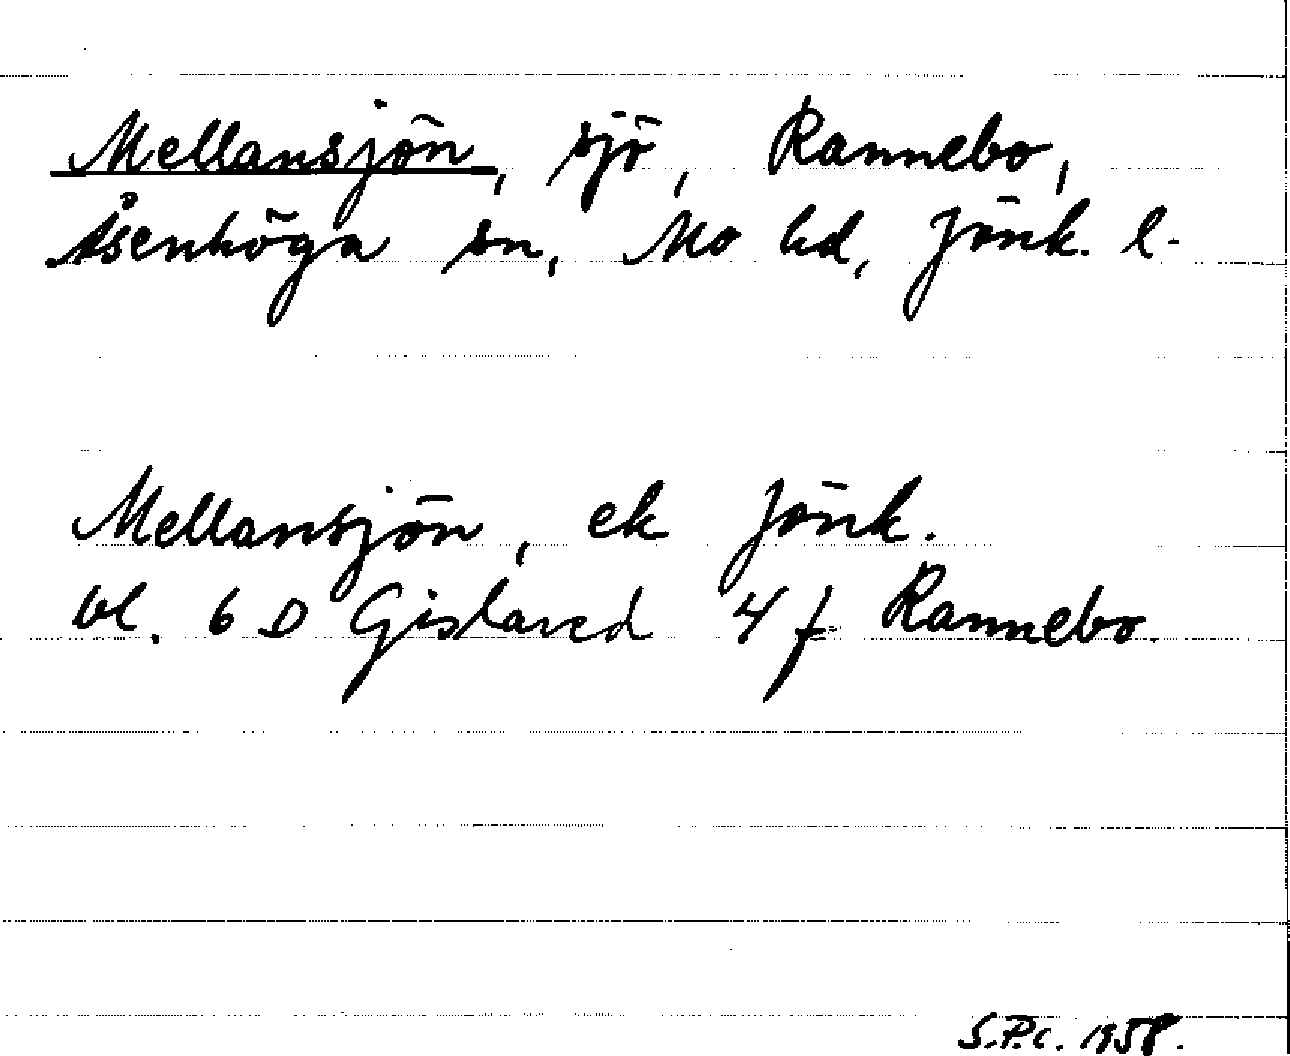 Mellansjön, sjö, Rannebo,
Åsenhöga sn, Mo hd, Jönk. l.
Mellansjön, ek Jönk.
bl. 6 D Gislaved 4 f Rannebo.
S.P.C. 1958.